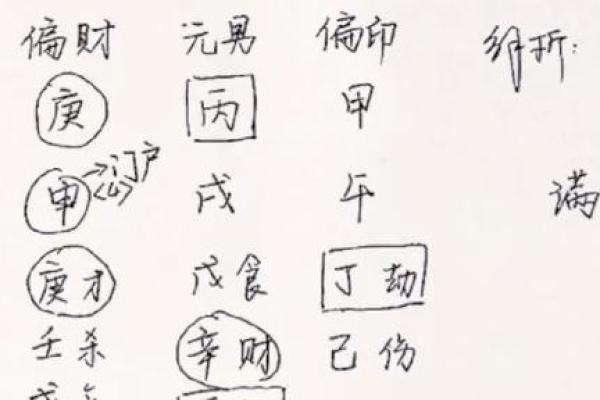 偏财 元男 偏印
庚 丙 甲
→门户
申 <4> 戌 午 满
庚才 戊食 丁劫
壬杀 辛财 己伤